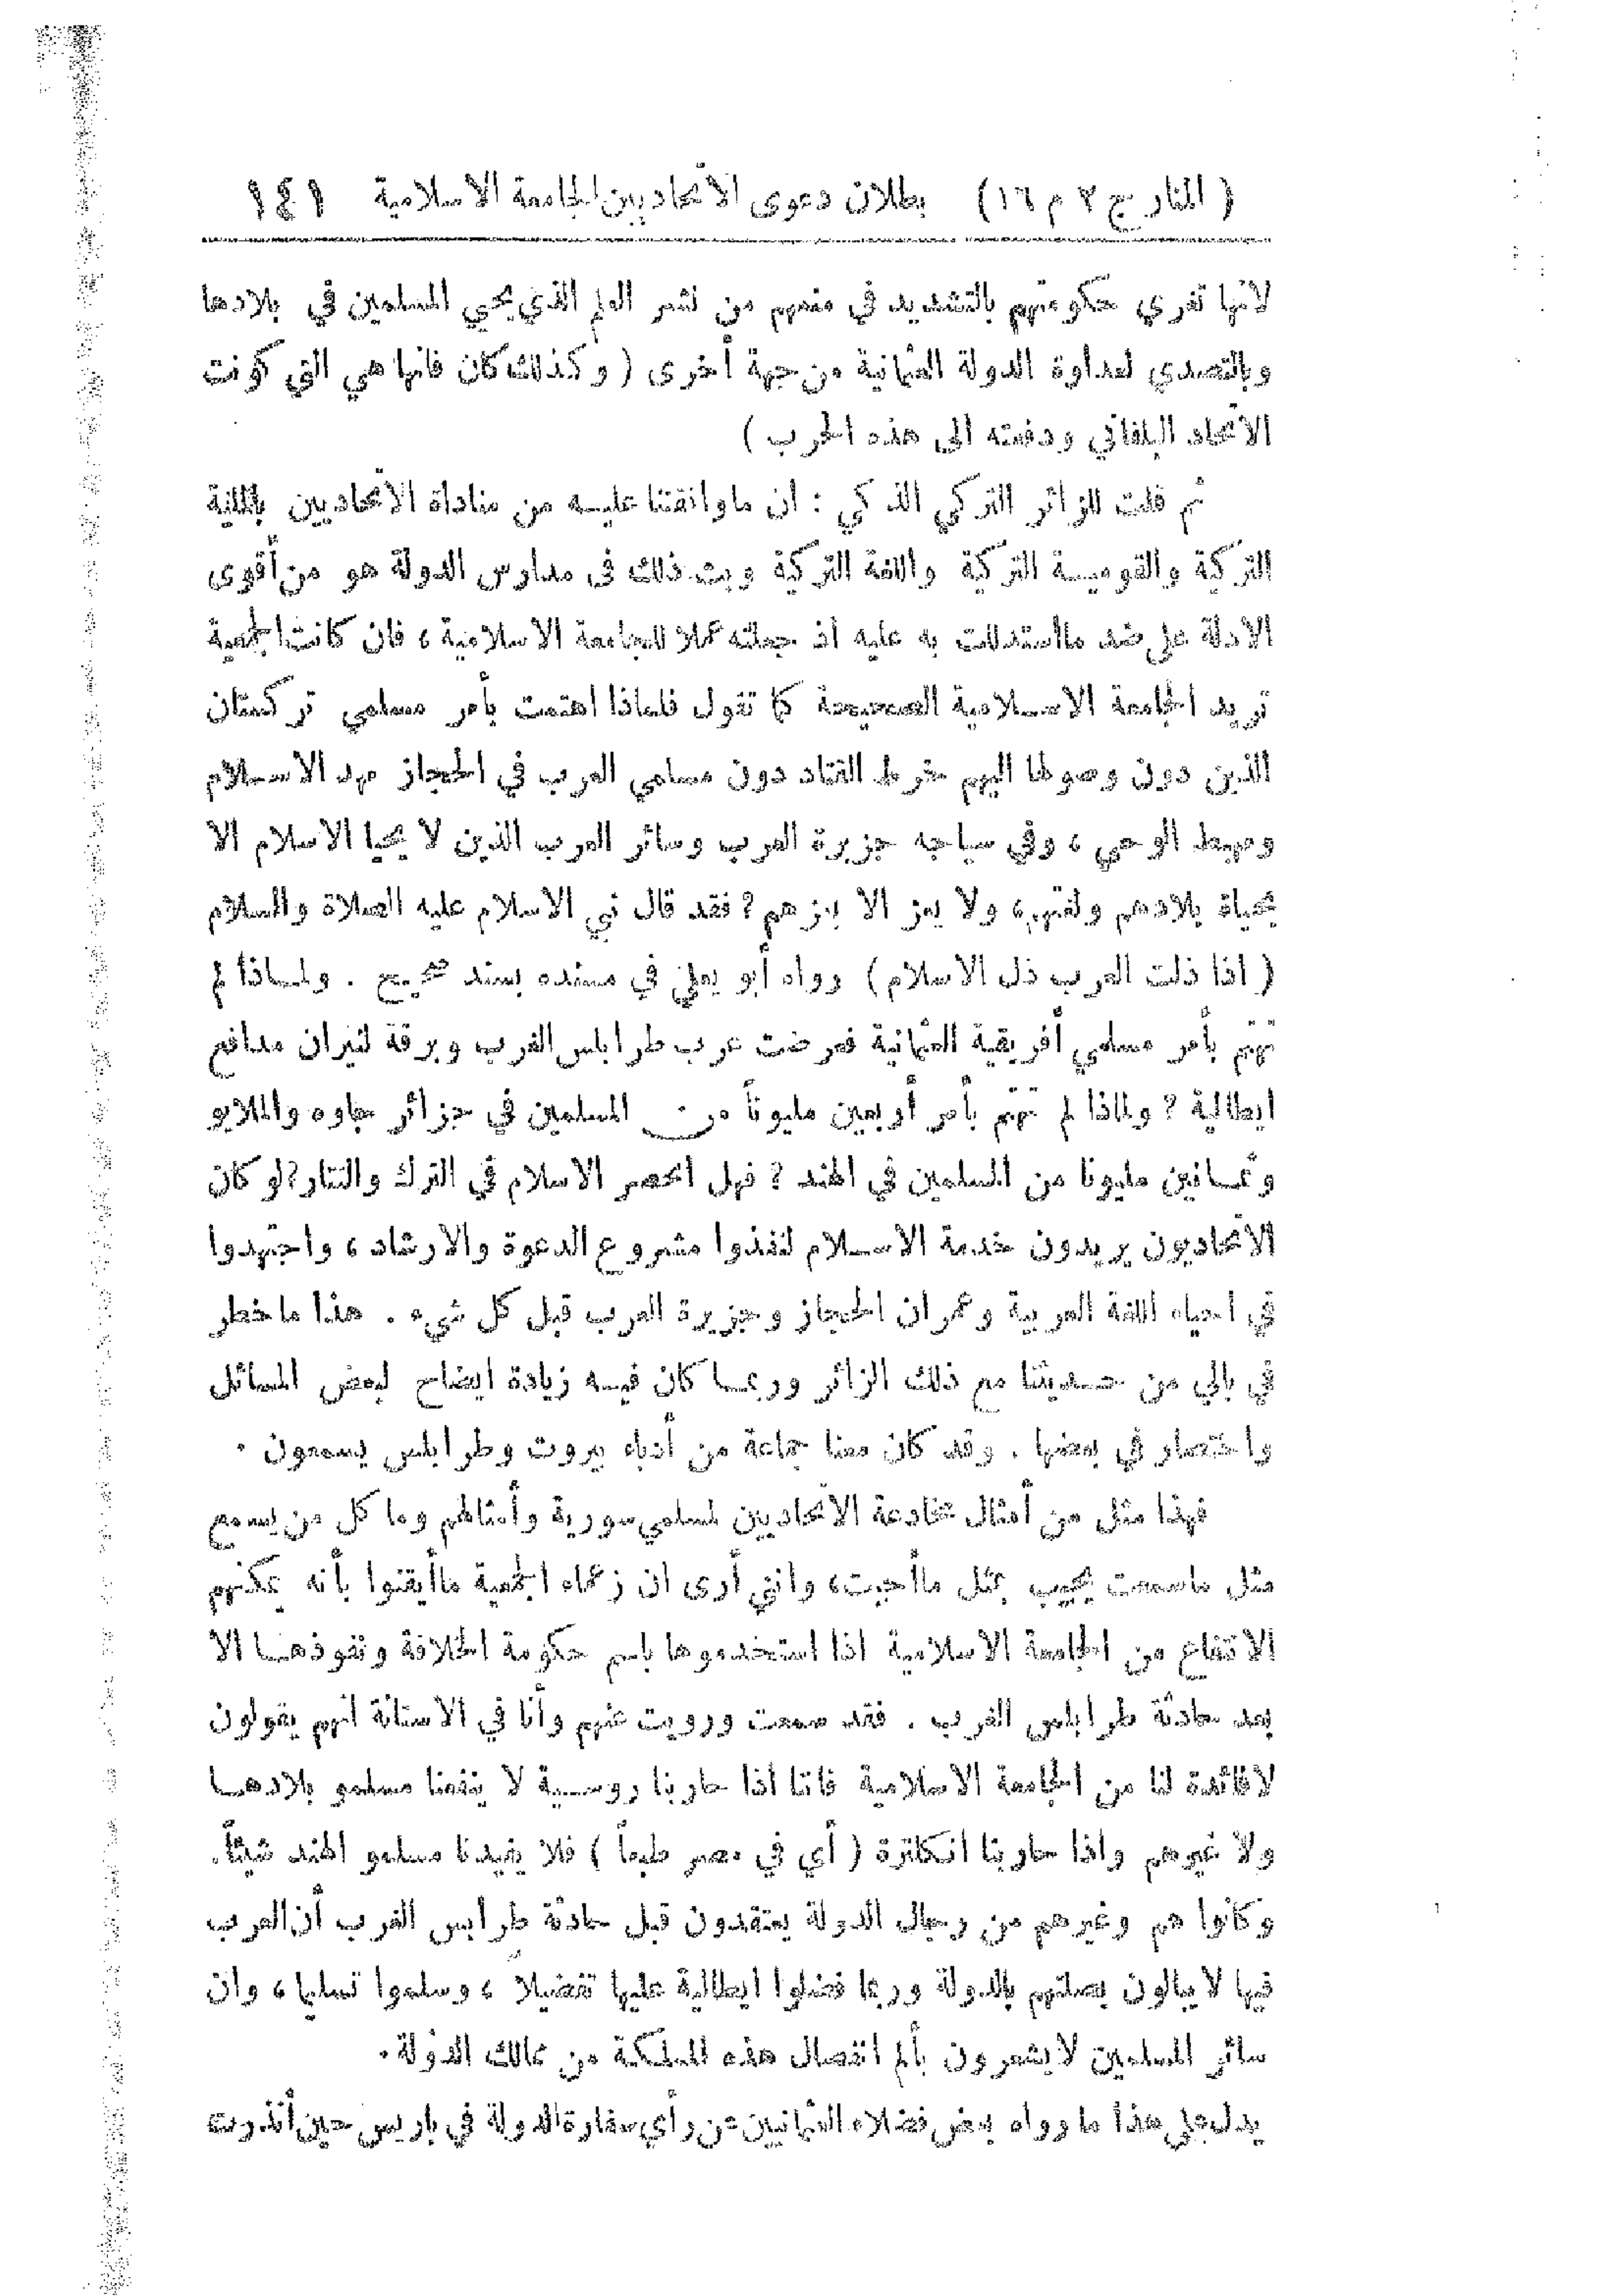 ( المنار ج ٢ م ١٦ ) بطلان دعوى الاتحاديين الجامعة الاسلامية ١٤١
لانها تغري حكومتهم بالتشديد في منعهم من نشر العلم الذي يحيي المسلمين في بلادها
وبالتصدي لعداوة الدولة العثمانية من جهة أخرى ( وكذلك كان فانها هي التي كونت
الاتحاد البلقاني ودفعته الى هذه الحرب )
ثم قلت للزائر التركي الذكي : ان ماوافقتنا عليه من مناداة الاتحاديين بالملية
التركية والقومية التركية واللغة التركية وبث ذلك في مدارس الدولة هو من أقوى
الادلة على ضد ماأستدللت به عليه اذ جعلته عملا للجامعة الاسلامية ، فان كانت الجمعية
تريد الجامعة الاسلامية الصحيحة كما تقول فلماذا اهتمت بأمر مسلمي تركستان
الذين دون وصولها اليهم خرط القتاد دون مسلمي العرب في الحجاز مهد الاسلام
ومهبط الوحي ، وفي سياجه جزيرة العرب وسائر العرب الذين لا يحيا الاسلام الا
بحياة بلادهم ولغتهم ، ولا يعز الا بعزهم ? فقد قال نبي الاسلام عليه الصلاة والسلام
( اذا ذلت العرب ذل الاسلام ) رواه أبو يعلى في مسنده بسند صحيح . ولماذا لم
تهتم بأمر مسلمي أفريقية العثمانية فعرضت عرب طرابلس الغرب وبرقة لنيران مدافع
ايطالية ? ولماذا لم تهتم بأمر أربعين مليوناً من المسلمين في جزائر جاوه والملايو
وثمانين مليونا من المسلمين في الهند ? فهل انحصر الاسلام في الترك والتتار? لو كان
الاتحاديون يريدون خدمة الاسلام لنفذوا مشروع الدعوة والارشاد ، واجتهدوا
في احياء اللغة العربية وعمران الحجاز وجزيرة العرب قبل كل شيء . هذا ما خطر
في بالي من حديثنا مع ذلك الزائر وربما كان فيه زيادة ايضاح لبعض المسائل
واختصار في بعضها . وقد كان معنا جماعة من أدباء بيروت وطرابلس يسمعون .
فهذا مثل من أمثال مخادعة الاتحاديين لمسلمي سورية وأمثالهم وما كل من يسمع
مثل ماسمعت يجيب بمثل ماأجبت ، وانني أرى ان زعماء الجمعية ماأيقنوا بأنه يمكنهم
الانتفاع من الجامعة الاسلامية اذا استخدموها باسم حكومة الخلافة ونفوذها الا
بعد حادثة طرابلس الغرب . فقد سمعت ورويت عنهم وأنا في الاستانة انهم يقولون
لا فائدة لنا من الجامعة الاسلامية فاننا اذا حاربنا روسية لا ينفعنا مسلمو بلادها
ولا غيرهم واذا حاربنا انكلترة ( أي في مصر طبعاً ) فلا يفيدنا مسلمو الهند شيئاً .
وكانوا هم وغيرهم من رجال الدولة يعتقدون قبل حادثة طرابلس الغرب أن العرب
فيها لا يبالون بصلتهم بالدولة وربما فضلوا ايطالية عليها تفضيلا ، وسلموا تسليما ، وان
سائر المسلمين لايشعرون بألم انفصال هذه المملكة من ممالك الدولة .
يدل على هذا ما رواه بعض فضلاء العثمانيين عن رأي سفارة الدولة في باريس حين أنذرت